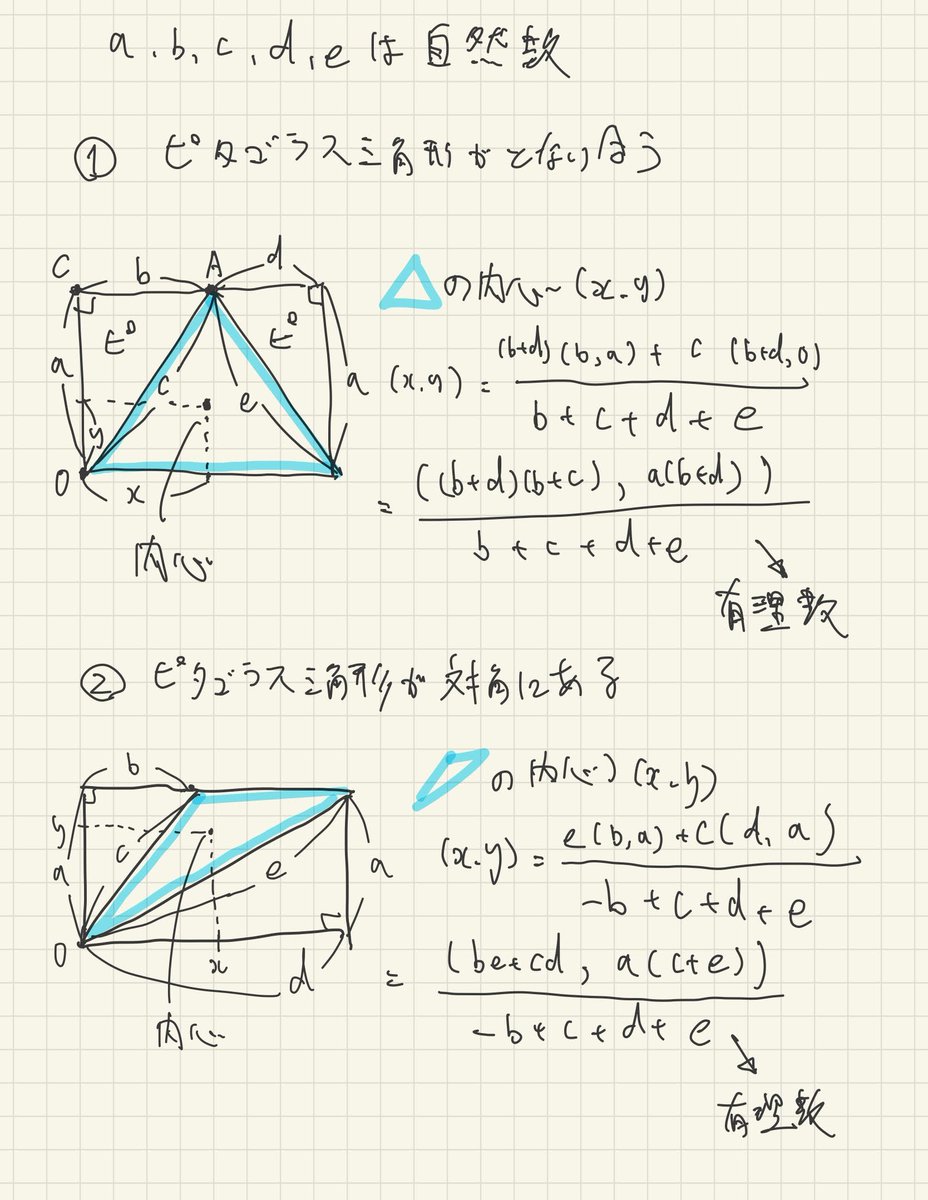 a, b, c, d, e は自然数
① ピタゴラス三角形がとなり合う
C b A d
ピ ピ
a c e a
y
O x
内心
△の内心 (x,y)
(x,y) = ((b+d)(b,a) + c (b+d,0)) / (b+c+d+e)
= ((b+d)(b+c), a(b+d)) / (b+c+d+e)
有理数
② ピタゴラス三角形が対角にある
b
y
a c e a
O x d
内心
の内心 (x,y)
(x,y) = (e(b,a)+c(d,a)) / (-b+c+d+e)
= (be+cd, a(c+e)) / (-b+c+d+e)
有理数